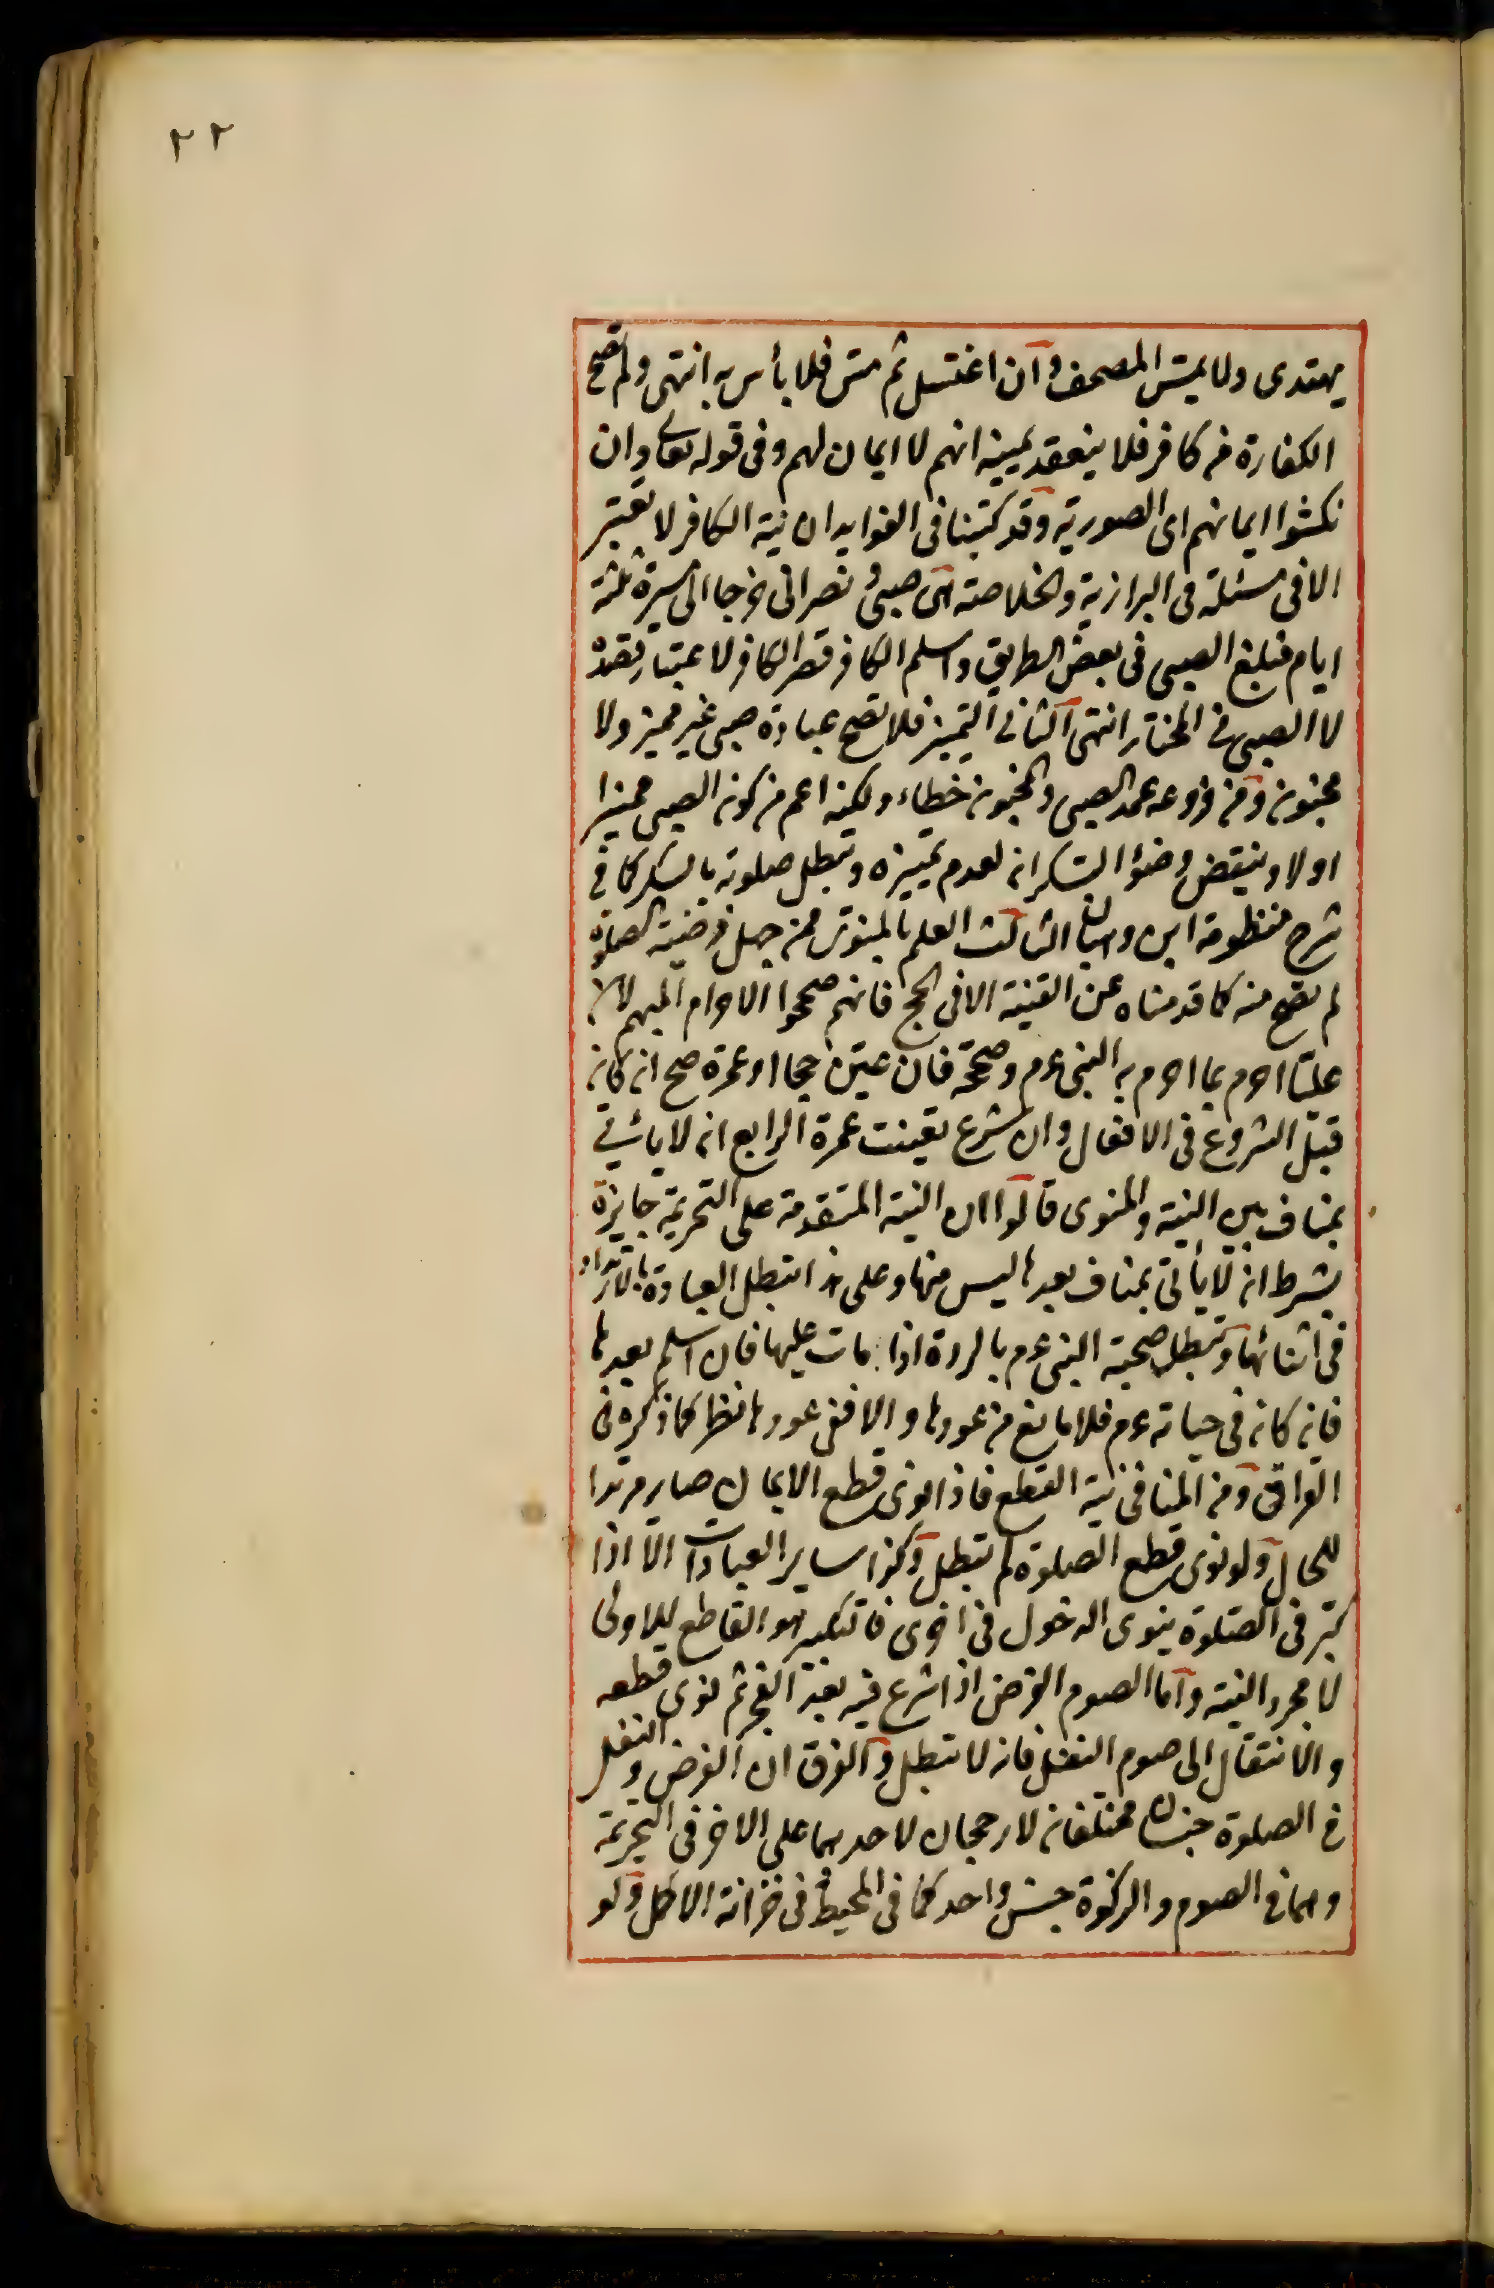 ٢٢
يهتدى ولا يمس المصحف وان اغتسل ثم مس فلا بأس به انتهى ولم تصح
الكفارة من كافر فلا ينعقد يمينه انهم لا ايمان لهم وفى قوله تعا وان
نكثوا ايمانهم اى الصورية وقد كتبنا فى الفوايد ان نية الكافر لا تعتبر
الا فى مسئلة فى البزازية والخلاصة هى صبى و نصرانى خرجا الى مسيرة ثلثة
ايام فبلغ الصبى فى بعض الطريق واسلم الكافر قصر الكافر لاعتبار قصده
لا الصبى فى المختار انتهى الثانى التمييز فلا تصح عبادة صبى غير مميز ولا
مجنون ومن فروعه عمد الصبى والمجنون خطاء ولكنه اعم من كون الصبى مميزا
اولا وينتقض وضوٴ السكران لعدم تمييزه وتبطل صلوته بالسكر كما فى
شرح منظومة ابن وهبان الثالث العلم بالمنوى فمن جهل فرضية الصلوة
لم تصح منه كما قدمناه عن القنية الا فى الحج فانهم صححوا الاحرام المبهم لان
عليا احرم بما احرم به النبى عم وصححه فان عين حجا او عمرة صح ان كان
قبل الشروع فى الافعال وان شرع تعينت عمرة الرابع ان لا يأتى
بمناف بين النية والمنوى قالوا ان النية المتقدمة على التحريمة جايزة
بشرط ان لا يأتى بمناف بعدها ليس منها وعلى هذا تبطل العبادة بالارتداد
فى اثنائها وتبطل صحبة النبى عم بالردة اذا مات عليها فان اسلم بعدها
فان كان فى حياته عم فلا مانع من عودها والا ففى عودها نظر كما ذكره فى
العراقى ومن المنافى نية القطع فاذا نوى قطع الايمان صار مرتدا
للحال ولو نوى قطع الصلوة لم تبطل وكذا ساير العبادات الا اذا
كبر فى الصلوة ينوى الدخول فى اخرى فالتكبير هو القاطع للاولى
لا مجرد النية واما الصوم الفرض اذا شرع فيه بعد الفجر ثم نوى قطعه
والانتقال الى صوم النفل فانه لا تبطل والفرق ان الفرض والنفل
فى الصلوة جنسان مختلفان لا رجحان لاحدهما على الاخر فى التحريمة
وهما فى الصوم والزكوة جنس واحد كما فى المحيط وفى خزانة الاكمل ولو